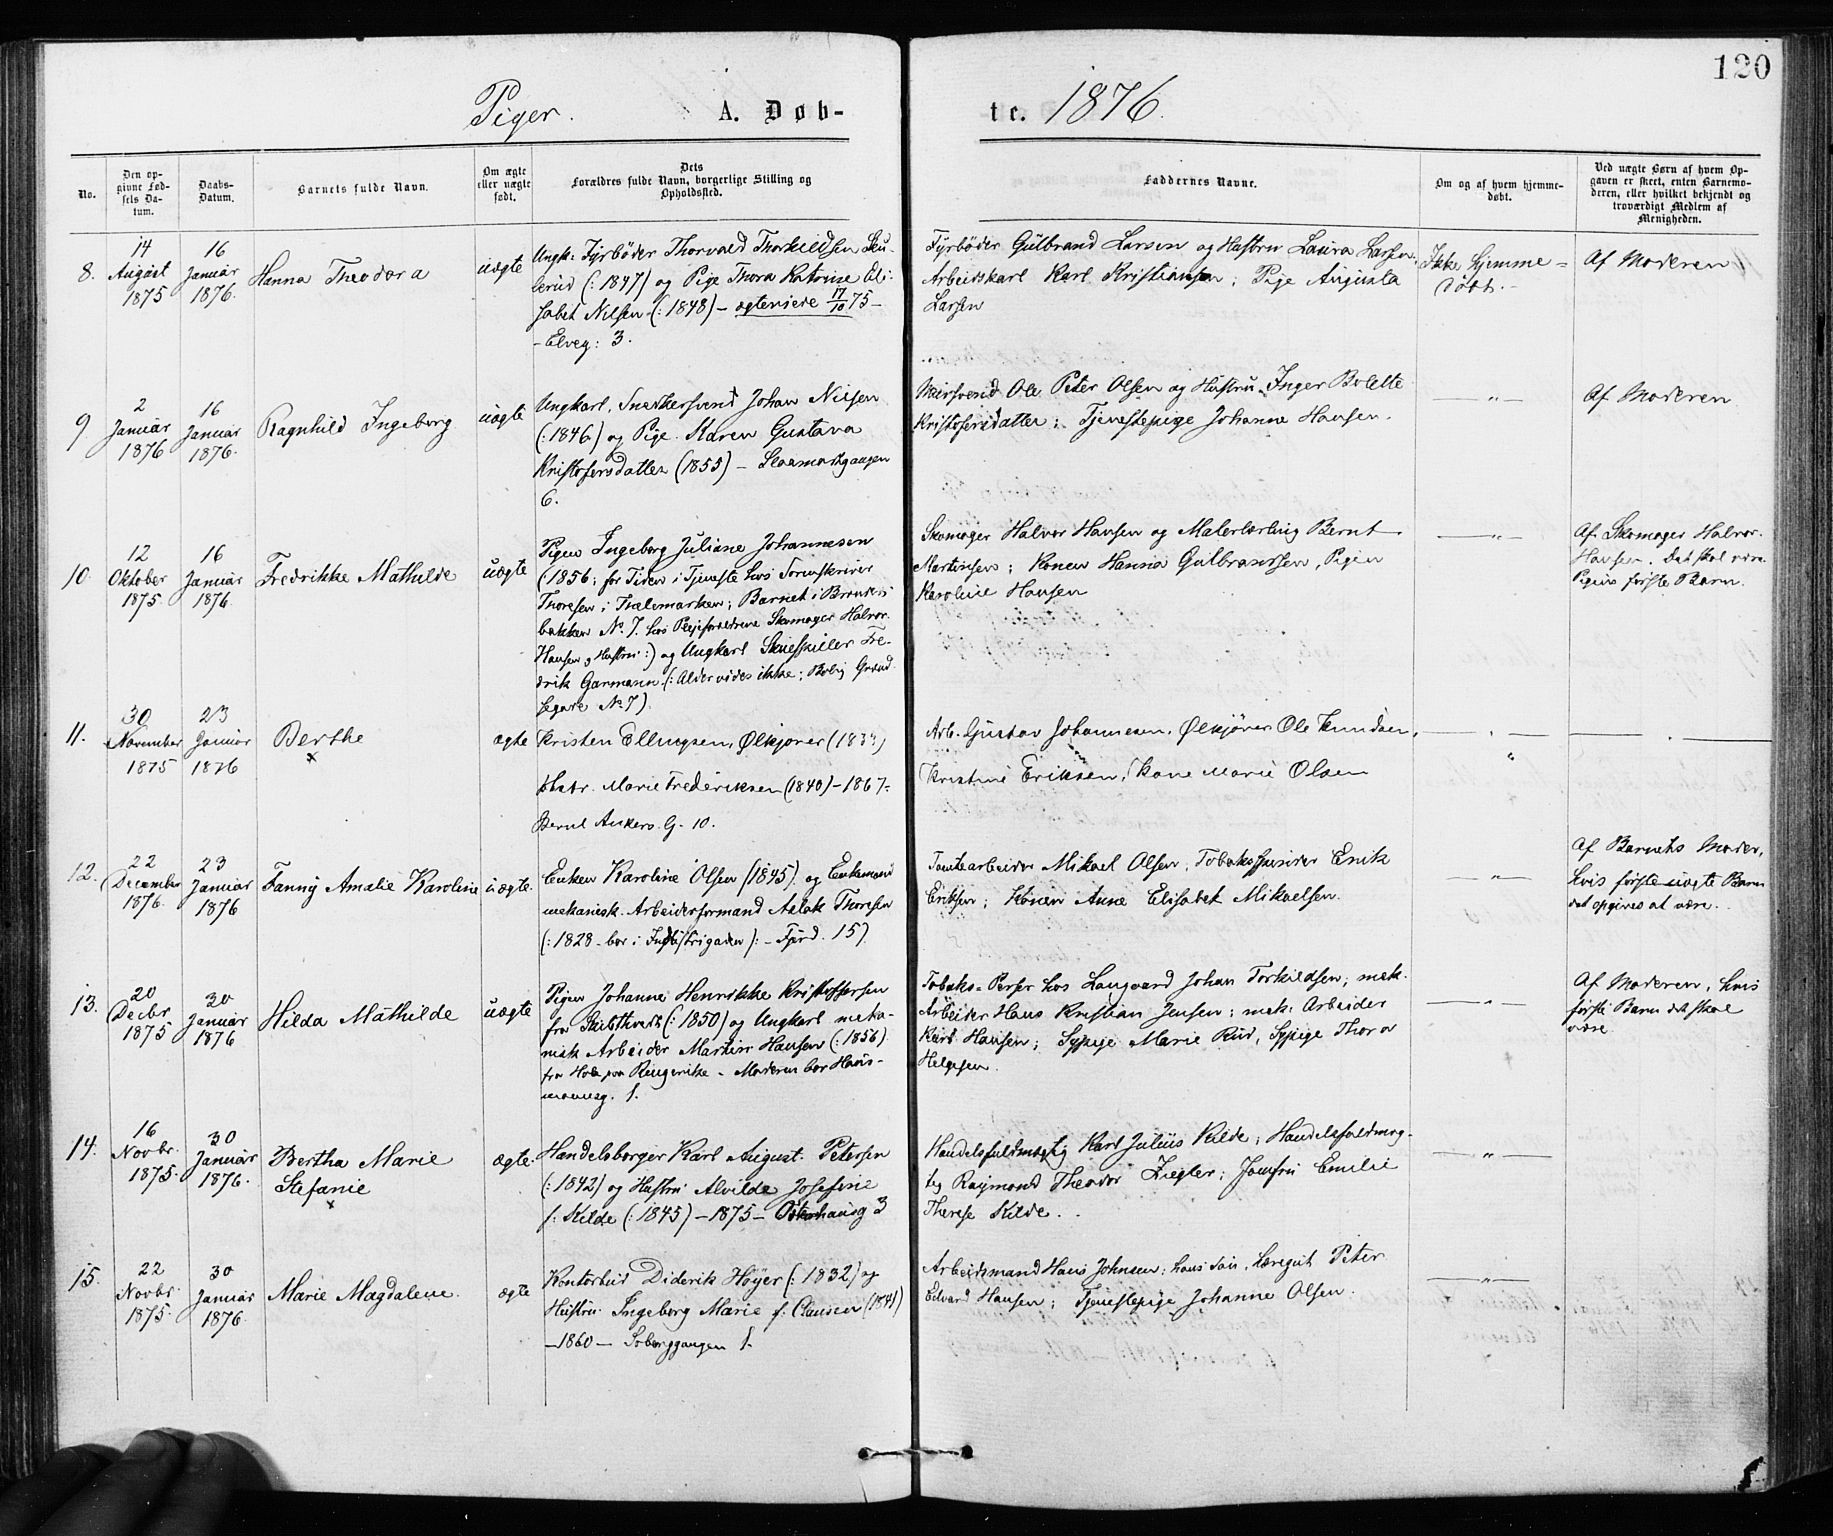 120
Piger. A. Døb-
te. 1876.
No.
Den op-
givne Fød-
sels Da-
tum.
Daabs-
Datum.
Barnets fulde Navn.
Om ægte
eller uægte
født.
Dets
Forældres fulde Navn, borgerlige Stilling og
Opholdssted.
Faddernes Navne.
Om og af hvem hjemme-
døbt.
Ved uægte Børn af hvem Op-
gaven er skeet, enten Barnemo-
deren, eller hvilket bekjendt og
troværdigt Medlem af
Menigheden.
8.
14
August
1875
16
Januar
1876.
Hanna Theodora
uægte
Ungk. Fyrbøder Thorvald Thorkildsen Sku-
lerud (: 1847) og Pige Thora Katrine Eli-
sabet Nilsen (: 1848) – ægteviede 17/10 75 –
– Elveg: 3.
Fyrbøder Gulbrand Larsen og Hustru Laura Larsen,
Arbeidskarl Karl Kristiansen; Pige Augusta
Larsen
Ikke hjemme-
døbt.
Af Moderen
9
2
Januar
1876
16
Januar
1876.
Ragnhild Ingeborg
uægte
Ungkarl, Snedkersvend Johan Nilsen
(: 1846) og Pige Maren Gustava
Kristofersdatter (1855) –
6.
Ole Peter Olsen og Hustru Inger Bolette
Kristofersdatter; Tjenestepige Johanne Hansen.
– " –
Af Moderen
10.
12
Oktober
1875.
16
Januar
1876.
Fredrikke Mathilde
uægte
Pigen Ingeborg Juliane Johannesen
(1856; for Tiden i Tjeneste hos Sorenskriver
Thoresen i Thelemarken; Barnet i
bakken No 7. hos Pleieforældrene Skomager Halvor
Hansen og Hustru:) og Ungkarl Skuespiller Fre-
drik Garmann (: Alder vides ikke; Bolig Grænd
segave No 7)
Skomager Halvor Hansen og Malerlærling Bernt
Martinsen; Konen Hanna Gulbrandsen, Pigen
Karoline Hansen
– " –
Af Skomager Halvor
Hansen. Det skal være
Pigens første Barn.
11.
30
November
1875
23
Januar
1876
Berthe
x
ægte
Kristen Ellingsen, Ølkjører
Hstr. Marie Frederiksen (1840) – 1867 –
Bernt Ankers G. 10.
Arb. Gustav Johannesen, Ølkjører Ole Knudsen,
Kristine Eriksen, Kone Marie Olsen
– " –
12.
22
December
1876.
23
Januar
1876
Fanny Amalie Karoline
uægte.
Enken Karoline Olsen (1845) og Enkemand
mekanisk Arbeiderformand Aslak Thoresen
(: 1828 – bor i Industrigaden): – Fjerd. 15)
Tomtearbeider Mikael Olsen, Tobaksspinder Erik
Eriksen; Konen Anne Elisabet Mikaelsen.
– " –
Af Barnets Moder,
hvis første uægte Barn
det opgives at være.
13.
20
Decbr.
1875
30
Januar
1876
Hilda Mathilde
uægte
Pigen Johanne Henrikke Kristoffersen
fra (: 1850) og Ungkarl meka-
nisk Arbeider Martin Hansen (: 1856)
fra Hole paa Ringerike – Moderen bor Haus-
mannsg. 1.
Tobaks- hos Langaard Johan Torkildsen; mek.
Arbeider Hans Kristian Jensen; mek: Arbeider
Karl Hansen; Sypige Marie Rud, Sypige Thora
Helgesen.
– " –
Af Moderen, hvis
første Barn det skal
være
14.
16
Novbr.
1875.
30
Januar
1876.
Bertha Marie
Stefanie
x
ægte.
Handelsborger Karl August Petersen
(: 1842) og Hustru Alvilde Josefine
f: Kilde (: 1845) – 1875 – Osterhausg 3
Handelsfuldmægtig Karl Julius Kilde; Handelsfuldmæg-
tig Raymond Theodor Ziegler; Jomfru Emilie
Therese Kilde.
– " –
15.
22
Novbr.
1875.
30
Januar
1876.
Marie Magdalene.
ægte
Kontorbud Diderik Høyer (: 1832) og
Hustru Ingeborg Marie f: Clausen (1841)
– 1860 – Soborggangen 1.
Arbeidsmand Hans Johnsen; hans Søn, Læregut Peter
Edvard Hansen; Tjenestepige Johanne Olsen.
– " –